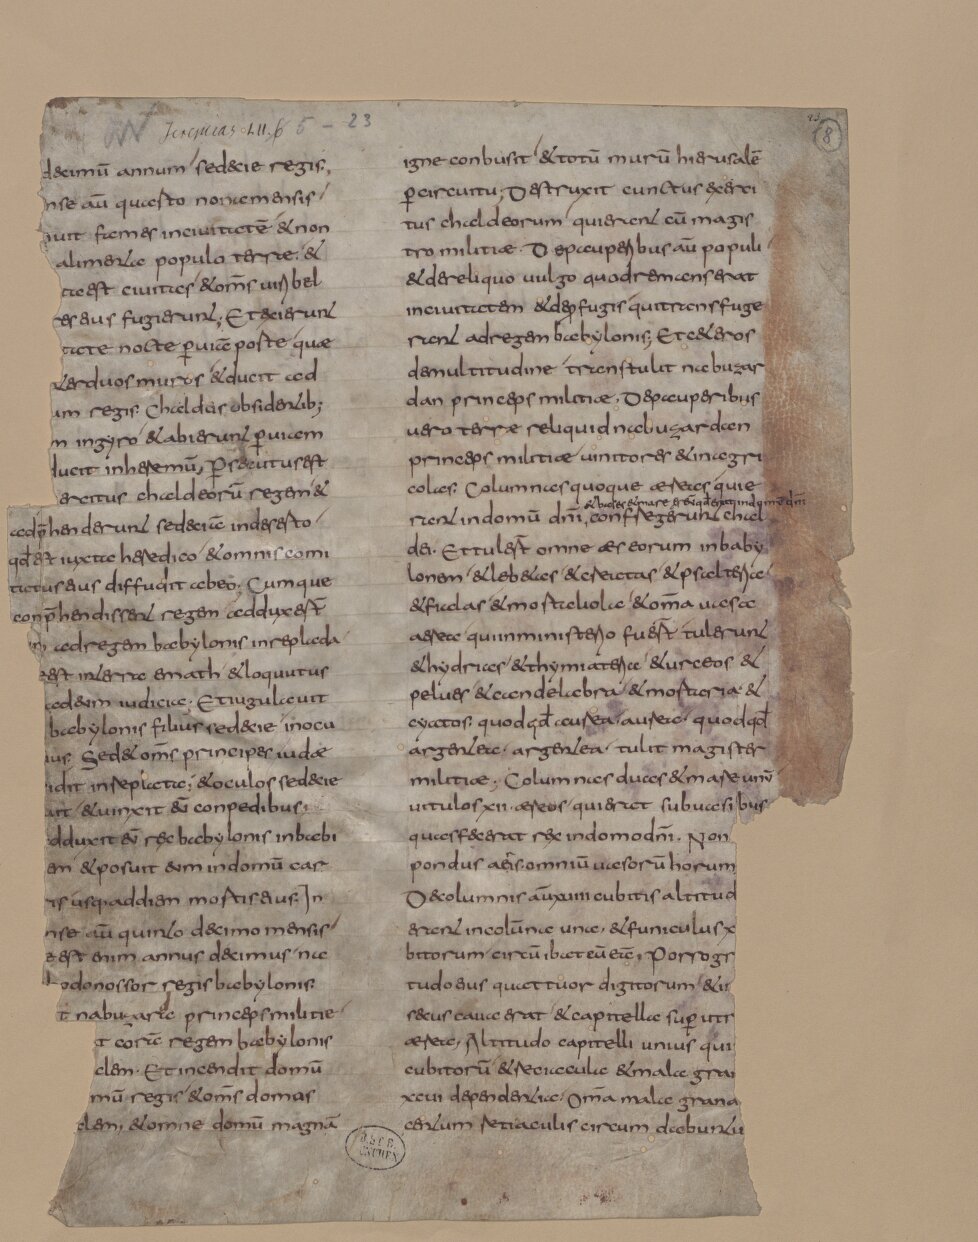 Jeremias LII, 5 - 23
8
decimū annum sedecie regis.,
nse aū quarto nona mensis
nuit fames inciuitatē & non
alimenta populo terrae. &
ta est ciuitas & om̄s uiri bel
res eius fugierunt; Et exierunt
tate nocte p uiā portae quae
ter duos muros & ducit ad
um regis. Chaldeis obsidentib;
m ingyro & abierunt p uiam
ducit inheremū; Persecutus est
exercitus chaldeorū regem &
adp̄henderunt sedeciā indeserto
qd̄ est iuxta hierico & omnis comi
tatus eius diffugit ab eo; Cumque
conp̄hendissent regem adduxer̄
adregem babylonis inreblada
est interra emath & loquutus
ad eum iudicia; Et iugulauit
babylonis filius sedecie inocu
ius. Sed & om̄s principes iudae
idit inreblata; & oculos sedecie
uit & uinxit eū conpedibus.
dduxit eū rex babylonis inbabi
em & posuit eum indomū car
ris usq addiem mortis eius. In
nse aū quinto decimo mensis
e est enim annus decimus na
hodonossor regis babylonis.
t nabuzarda princeps militie
t corā regem babylonis
alem. Et incendit domū
mū regis & om̄s domus
alem; & omne domū magnā
igne conbusit & totū murū hierusalē
p circuitu; Destruxit cunctus exerci
tus chaldeorum qui erant cū magis
tro militiae. De pauperibus aū populi
& de reliquo uulgo quod remanserat
inciuitatem & de pfugis qui transfuge
rant adregem babylonis; Et ceteros
demultitudine transtulit nabuzar
dan princeps militiae, De pauperibus
uero terrae reliquid nabuzardan
princeps militiae uinitores & inagri
colas. Columnas quoque aereas quae
& bases & mare aeneū qd̄ erat indomū dn̄i
rant indomū dn̄i, confregerunt chal
dei. Et tuler̄ omne aes eorum inbaby
lonem & lebetas & creacras & psalteria
& fialas & mortariola & om̄a uasa
aerea qui inministerio fuer̄ tulerunt
& hydrias & thymiateria & urceos &
pelues & candelabra & mortaria. &
cyatos. quodqd̄ aurea. aurea. quodqd̄
argentea. argentea. tulit magister
militiae. Columnas duas & mare unū
uitulos xii. aereos qui erat sub uasibus
quas fecerat rex indomo dn̄i. Non
pondus aeris omniū uasorū horum
De columnis aū xuiii cubitis altitud
erant incolūna una. & funiculus x
bitorum circū ibat eū eam; Porro gr
tudo eius quattuor digitorum & in
secus caua erat & capitella super utr
aerea; Altitudo capitelli unius qui
cubitorū & retiacula & mala gra
xcui dependentia. Om̄a mala grana
centum retiaculis circum dabuntu